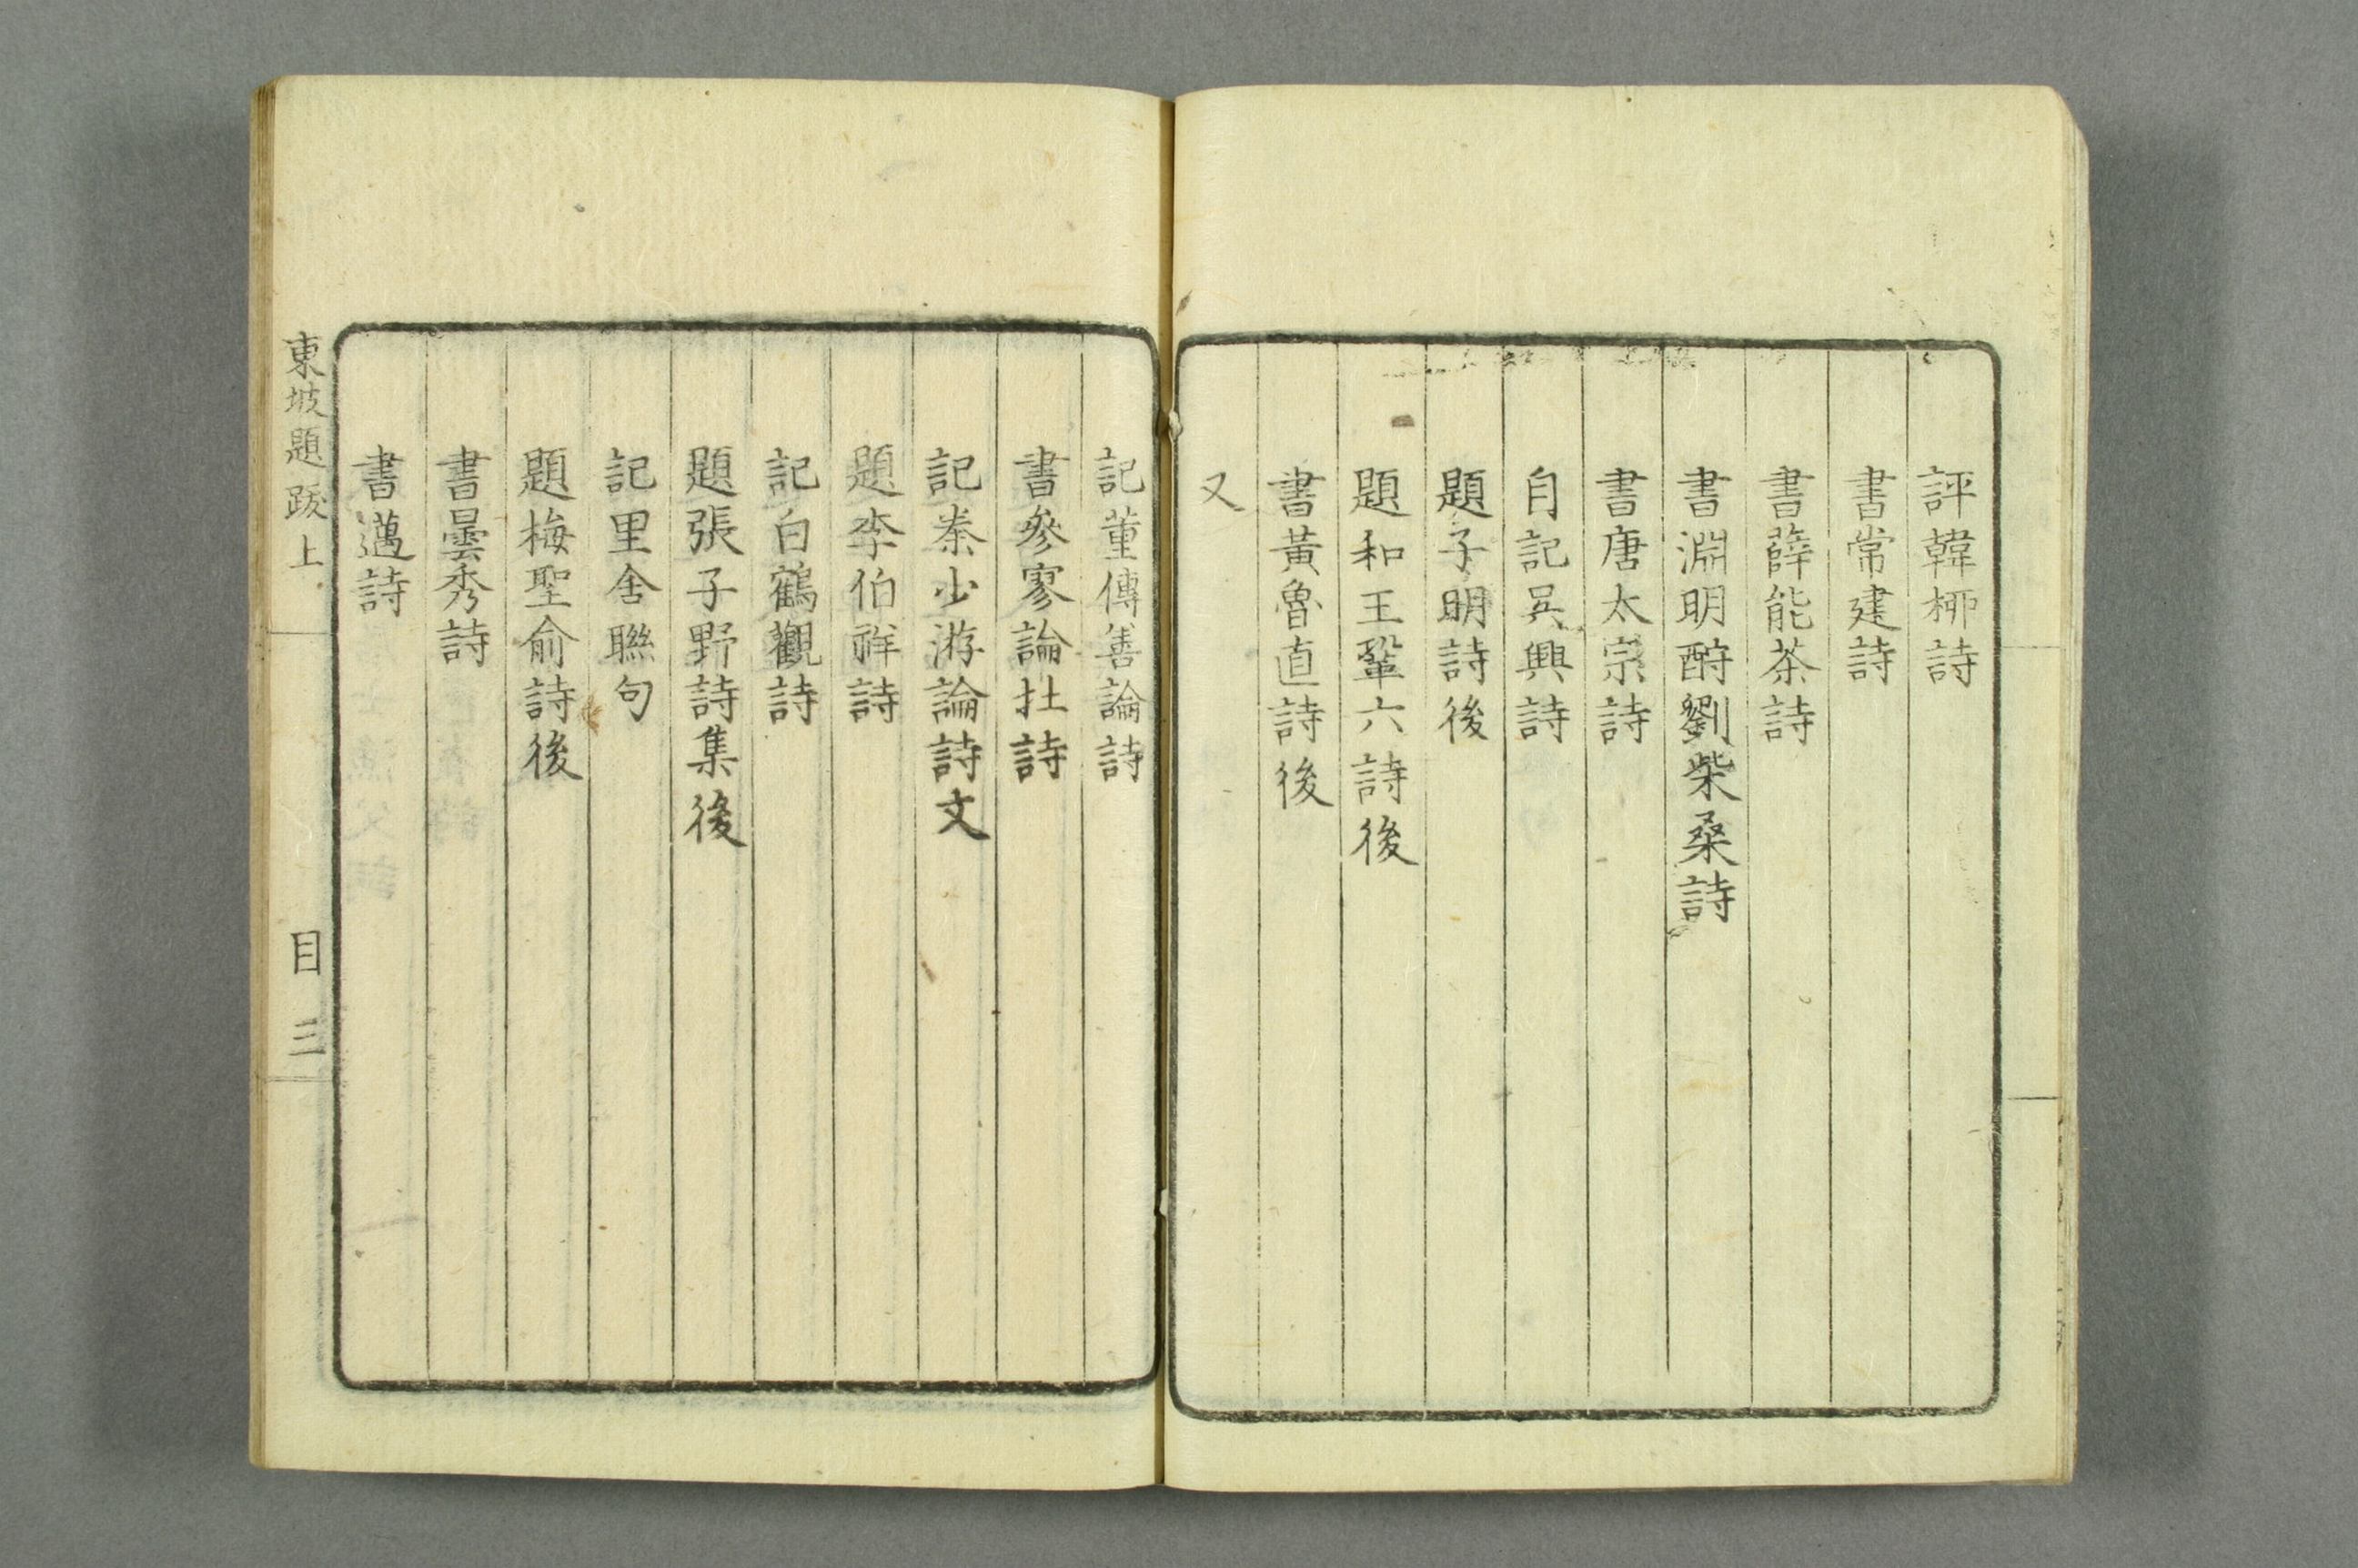 評韓桞詩
書常建詩
書薛能茶詩
書淵明酧劉柴桑詩
書唐太宗詩
自記吳興詩
題子明詩後
題和王鞏六詩後
書黃魯直詩後
又
記董傳善論詩
書參寥論杜詩
記秦少游論詩文
題李伯祥詩
記白鶴觀詩
題張子野詩集後
記里舍聯句
題梅聖俞詩後
書曇秀詩
書邁詩
東坡題跋上
目三